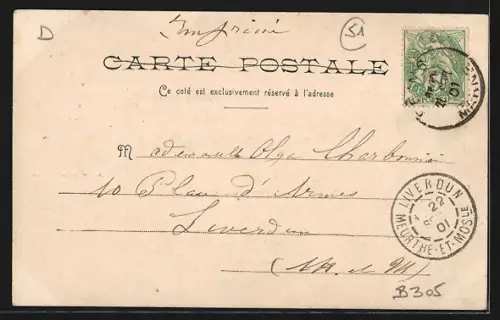 D
Imprimé
51
CARTE POSTALE
Ce coté est exclusivement réservé à l'adresse
Mademoiselle Olga Charbonnier
10 Place d'Armes
Liverdun
(M et M)
LIVERDUN
22
01
MEURTHE-ET-MOSLE
01
B305